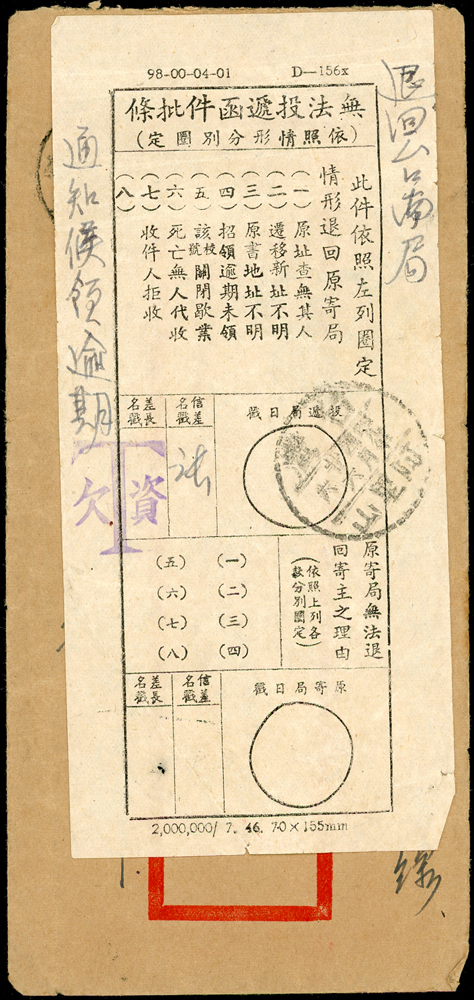 98-00-04-01 D—156x
條批件函遞投法無
(定圈別分形情照依)
此件依照左列圈定
情形退回原寄局
(一)原址查無其人
(二)遷移新址不明
(三)原書地址不明
(四)招領逾期未領
(五)該號校關閉歇業
(六)死亡無人代收
(七)收件人拒收
(八)
戳日局遞投
信差名戳
差長名戳
原寄局無法退
回寄主之理由
(依照上列各
款分別圈定)
(一)
(二)
(三)
(四)
(五)
(六)
(七)
(八)
戳日局寄原
信差名戳
差長名戳
2,000,000/ 7. 46. 70×155mm
退回台南局
通知候領逾期
欠資